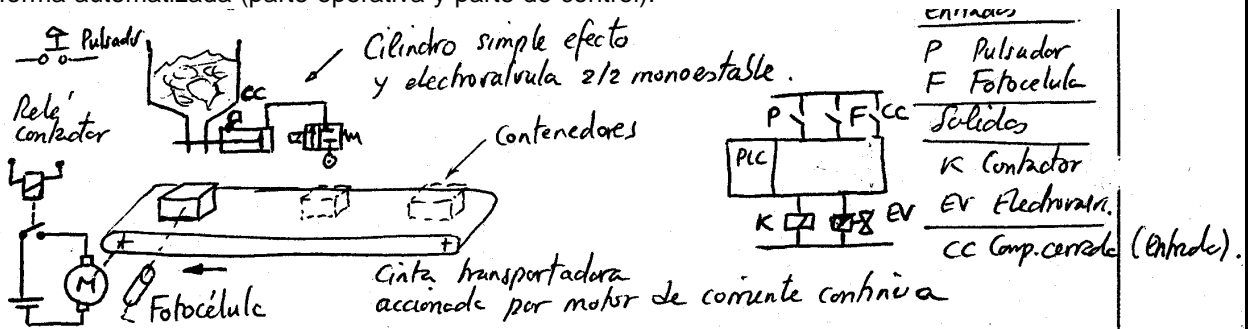 forma automatizada (parte operativa y parte de control).
Pulsador
Cilindro simple efecto
y electroválvula 2/2 monoestable.
CC
Relé
contactor
contenedores
M
Fotocélula
Cinta transportadora
accionada por motor de corriente continua
P F CC
PLC
K EV
Entradas
P Pulsador
F Fotocelula
Salidas
K Contactor
EV Electrovalv.
CC Comp. cerrada (Entrada).